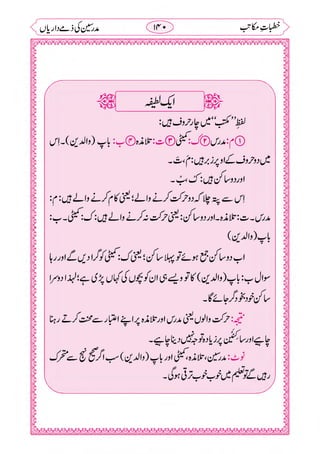 خطباتِ مکاتب ۱۴۰ مدرسین کی ذمے داریاں
ایک لطیفہ
لفظ ’’مکتب‘‘ میں چار حروف ہیں:
①م: مدرس ②ک: کمیٹی ③ت: تلامذہ ④ب: باپ (والدین)۔ اِس
میں دو حروف کے اوپر زبر ہیں: مَ، تَ۔
اور دو ساکن ہیں: کْ، بْ۔
اِس سے پتہ چلا کہ دو حرکت کرنے والے؛ یعنی کام کرنے والے ہیں: م:
مدرس۔ ت: تلامذہ۔ اور دو ساکن: یعنی حرکت نہ کرنے والے ہیں: ک: کمیٹی۔ ب:
باپ (والدین)
اب دو ساکن جمع ہوئے تو پہلا ساکن؛ یعنی ک: کمیٹی کو گرا دیں گے اور رہا
سوال ب: باپ (والدین) کا تو ویسے ہی ان کو بچوں کی کہاں پڑی ہے؛ لہٰذا دوسرا
ساکن خود بخود گر جائے گا۔
نتیجہ: حرکت والوں یعنی مدرس اور تلامذہ پر اپنے اعتبار سے محنت کرتے رہنا
چاہیے اور ساکنَین پر زیادہ توجہ نہیں دینا چاہیے۔
نوٹ: مدرسین، تلامذہ، کمیٹی اور باپ (والدین) سب اگر صحیح نہج سے متحرک
رہیں گے تو تعلیم میں خوب خوب ترقی ہوگی۔